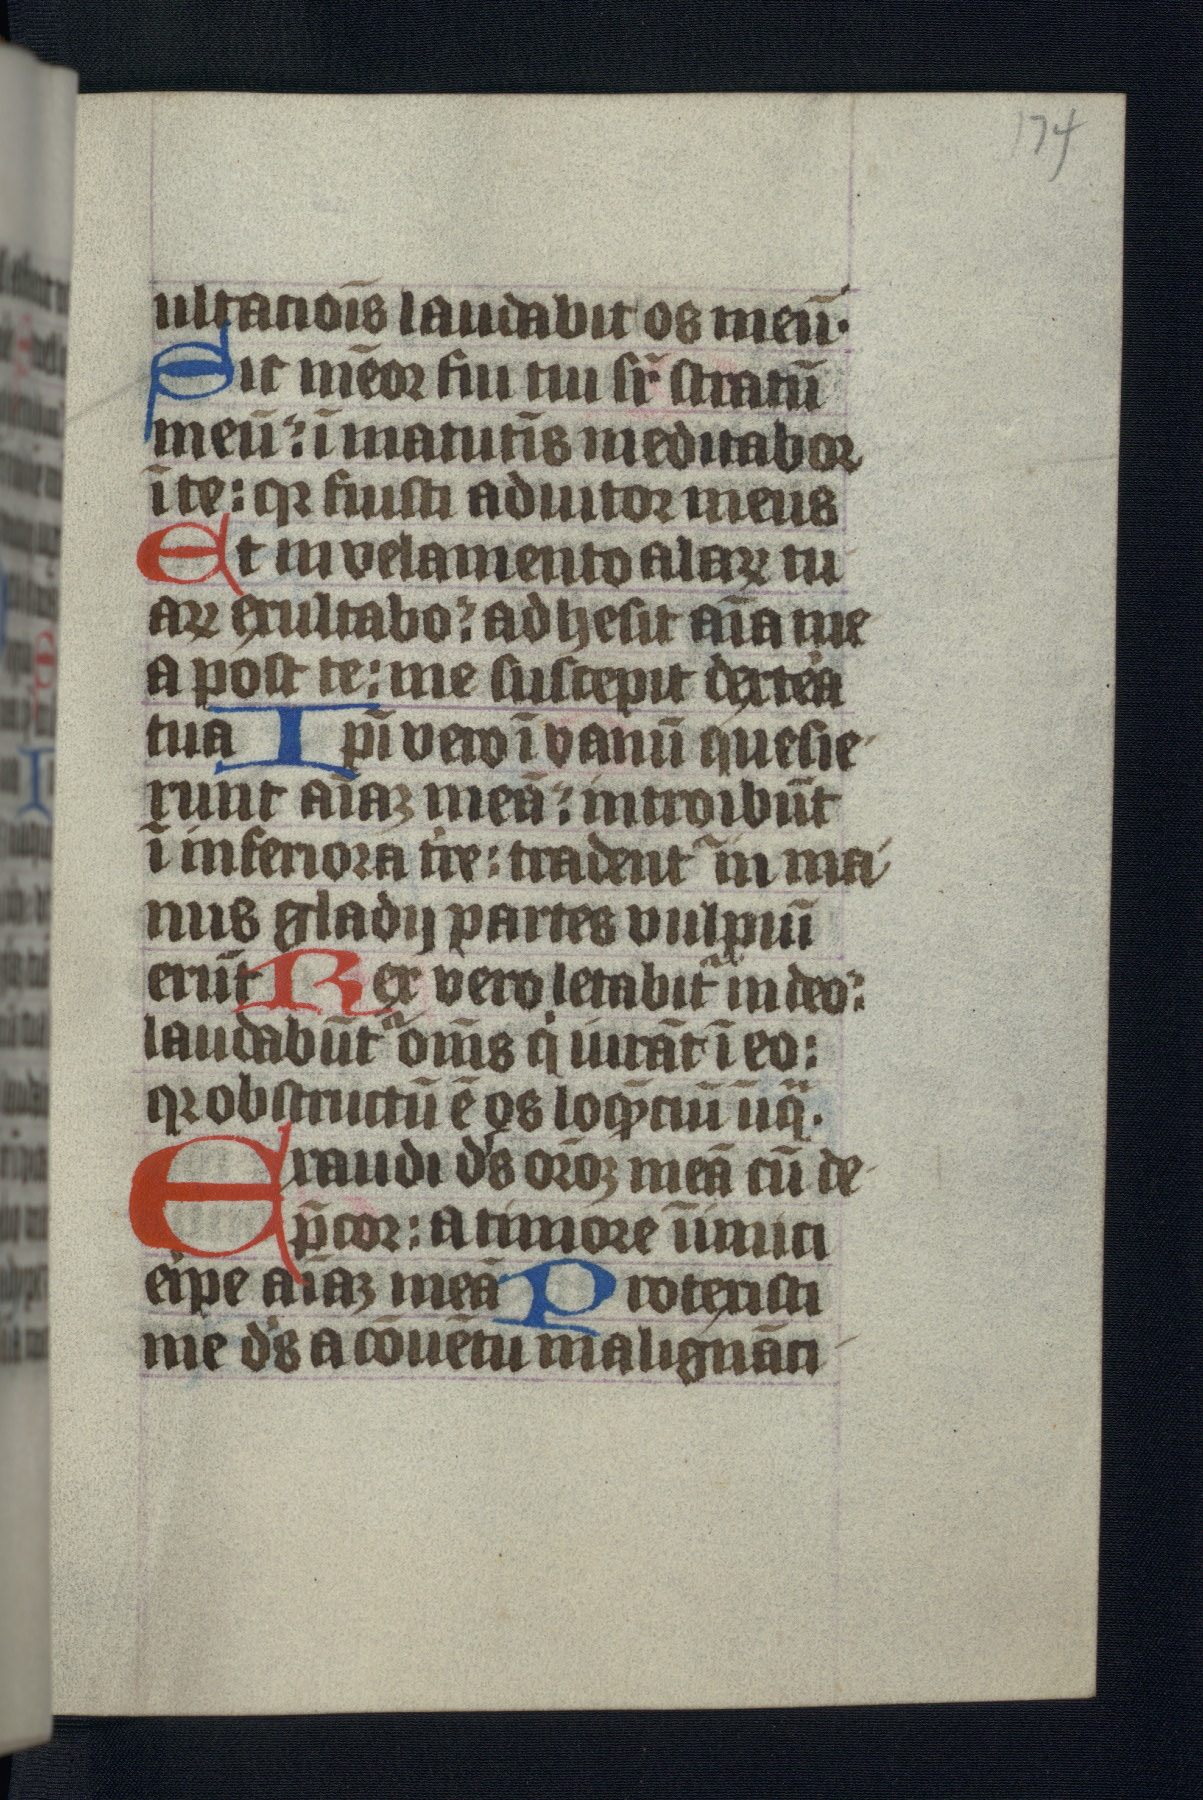 174
ultatiōīs laudabit os meū·
Sic mēor fui tui sr̄ stratū
meū: ī matutīs meditabor
ī te: qꝛ fuisti adiutor meus
Et in velamento alaꝝ tu
aꝝ exultabo: adhesit aīa me
a post te: me suscepit dextēa
tua Ipī vero ī vanū quesie-
runt aīaꝫ meā: introibūt
ī inferiora tr̄e: tradent᷑ in ma-
nus gladij partes vulpiū
erūt Rex vero letabit᷑ in deo:
laudabūt᷑ om̄s q̄ iurāt ī eo:
qꝛ obstructū ē os loq̄ntiū iīq̄.
Exaudi ds̄ orōꝫ meā cū de-
p̄cor: a timore īimici
eripe aīaꝫ meā Protexisti
me ds̄ a cōuētu malignāti-